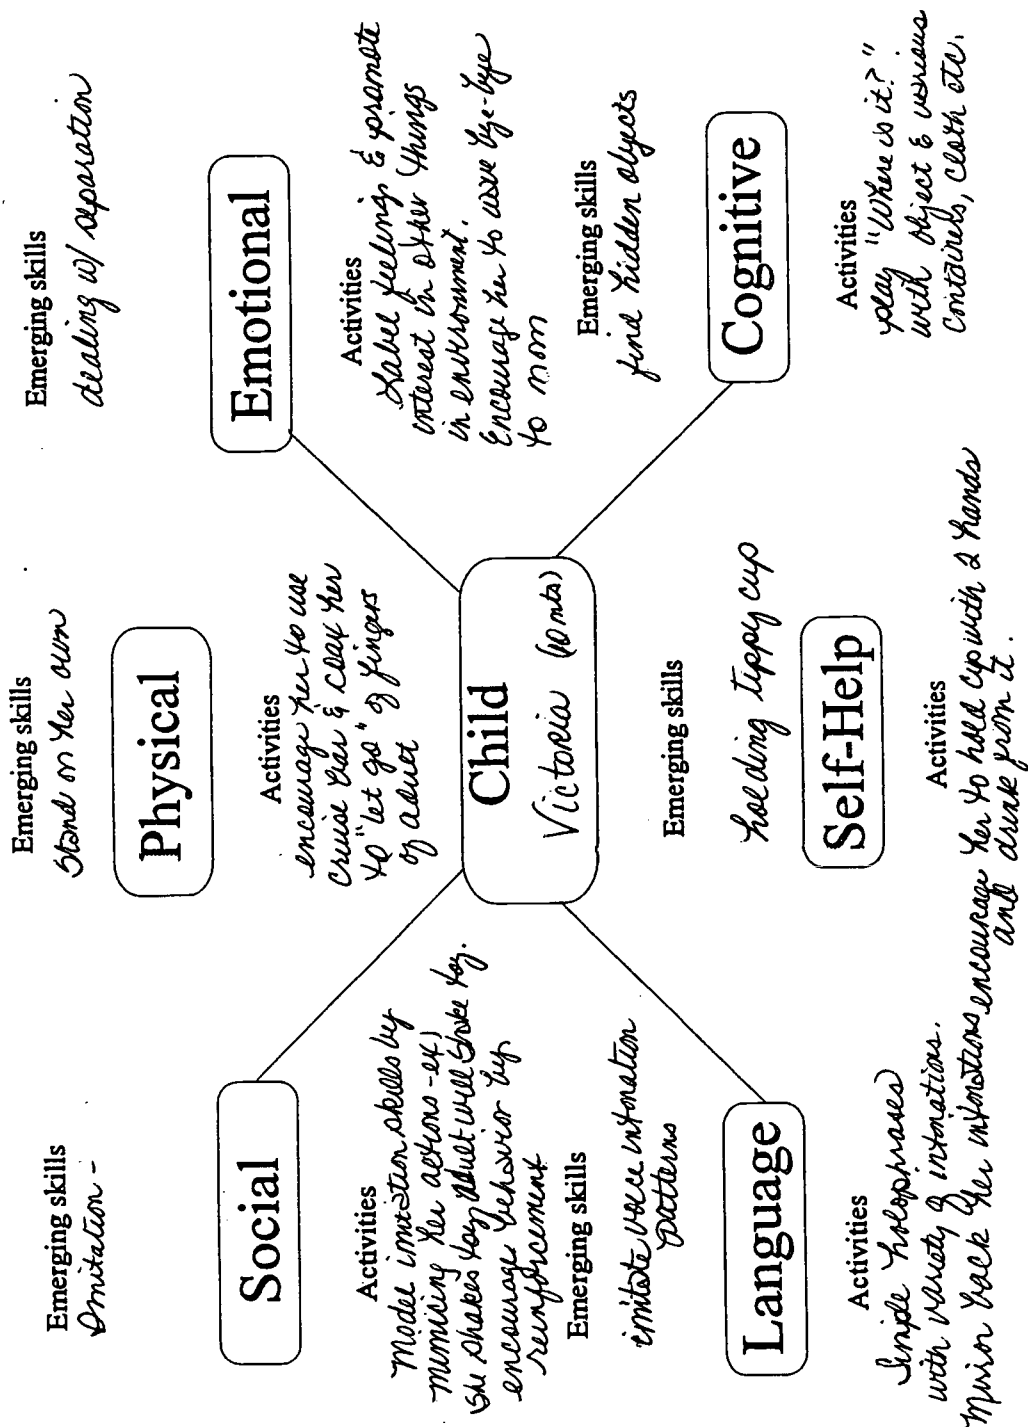 Emerging skills
Imitation -
Social
Activities
Model imitation skills by
mimicing her actions - ex)
she shakes toy, adult will shake toy.
encourage behavior by
reinforcement
Emerging skills
Stand on her own
Physical
Activities
encourage her to use
cruise bar & coax her
to "let go" of fingers
of adult
Emerging skills
dealing w/ separation
Emotional
Activities
Label feelings & promote
interest in other things
in environment.
Encourage her to wave bye-bye
to mom
Child
Victoria (10 mts)
Emerging skills
imitate voice intonation
patterns
Language
Activities
Simple holophrases
with variety of intonations.
Mirror back her intonations
Emerging skills
holding tippy cup
Self-Help
Activities
encourage her to hold cup with 2 hands
and drink from it.
Emerging skills
find hidden objects
Cognitive
Activities
play "Where is it?"
with object & various
containers, cloth etc.